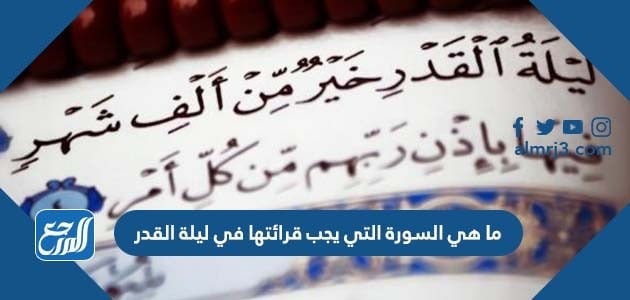 لَيْلَةُ ٱلْقَدْرِ خَيْرٌ مِّنْ أَلْفِ شَهْرٍ
فِيهَا بِإِذْنِ رَبِّهِم مِّن كُلِّ أَمْرٍ ٤
almrj3.com
ما هي السورة التي يجب قرائتها في ليلة القدر
المرجع